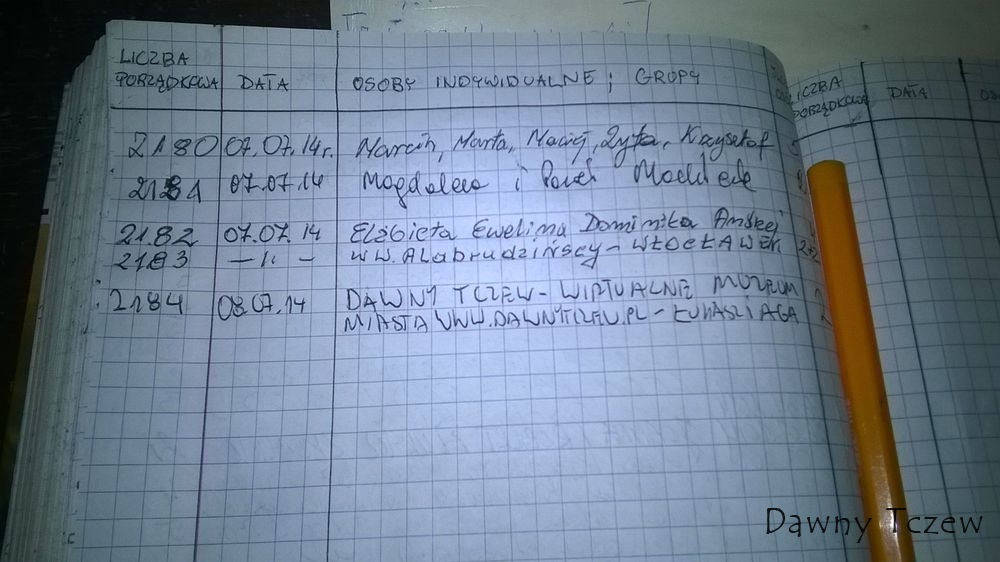 LICZBA
PORZĄDKOWA DATA OSOBY INDYWIDUALNE; GRUPY
2180 07.07.14r. Marcin, Marta, Maciej, Zyta, Krzysztof
2181 07.07.14 Magdalena i Paweł
2182 07.07.14 Elżbieta Ewelina Dominika Andrzej
2183 — 11 — W W. Alabrudzińscy - WŁOCŁAWEK
2184 08.07.14 DAWNY TCZEW - WIRTUALNE MUZEUM
MIASTA WWW.DAWNYTCZEW.PL - ŁUKASZ I AGA
LICZBA
PORZĄDKOWA DATA
Dawny Tczew